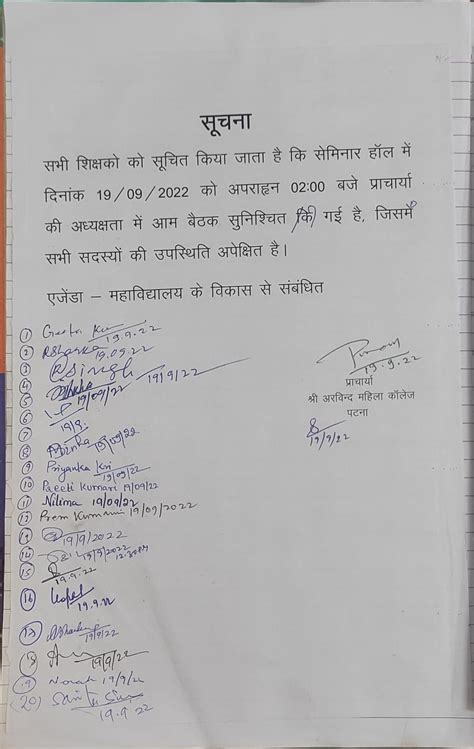 सूचना
सभी शिक्षको को सूचित किया जाता है कि सेमिनार हॉल में
दिनांक 19/09/2022 को अपराहृन 02:00 बजे प्राचार्या
की अध्यक्षता में आम बैठक सुनिश्चित की गई है, जिसमें
सभी सदस्यों की उपस्थिति अपेक्षित है।
एजेंडा – महाविद्यालय के विकास से संबंधित
19.9.22
प्राचार्या
श्री अरविन्द महिला कॉलेज
पटना
19/9/22
① Geeta 19.9.22
② RSharma 19.09.22
③ RSingh
④ 19/9/22
⑤ 19/09/22
⑥
19/9.
⑧ 19/09/22
⑨ Priyanka Kri 19/09/22
⑩ Preeti Kumari 19/09/22
⑪ Nilima 19/09/22
⑫ Prem Kumari 19/09/2022
19/9/2022
⑭ 19/9/2022
12:30PM
⑮ 19.9.22
⑯ 19.9.22
19/9/22
19/9/22
19/9/22
(20) 19.9.22